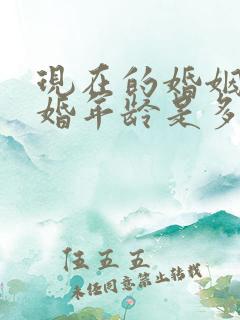 现在的婚姻
婚年龄是多
任五五
未经同意禁止转载